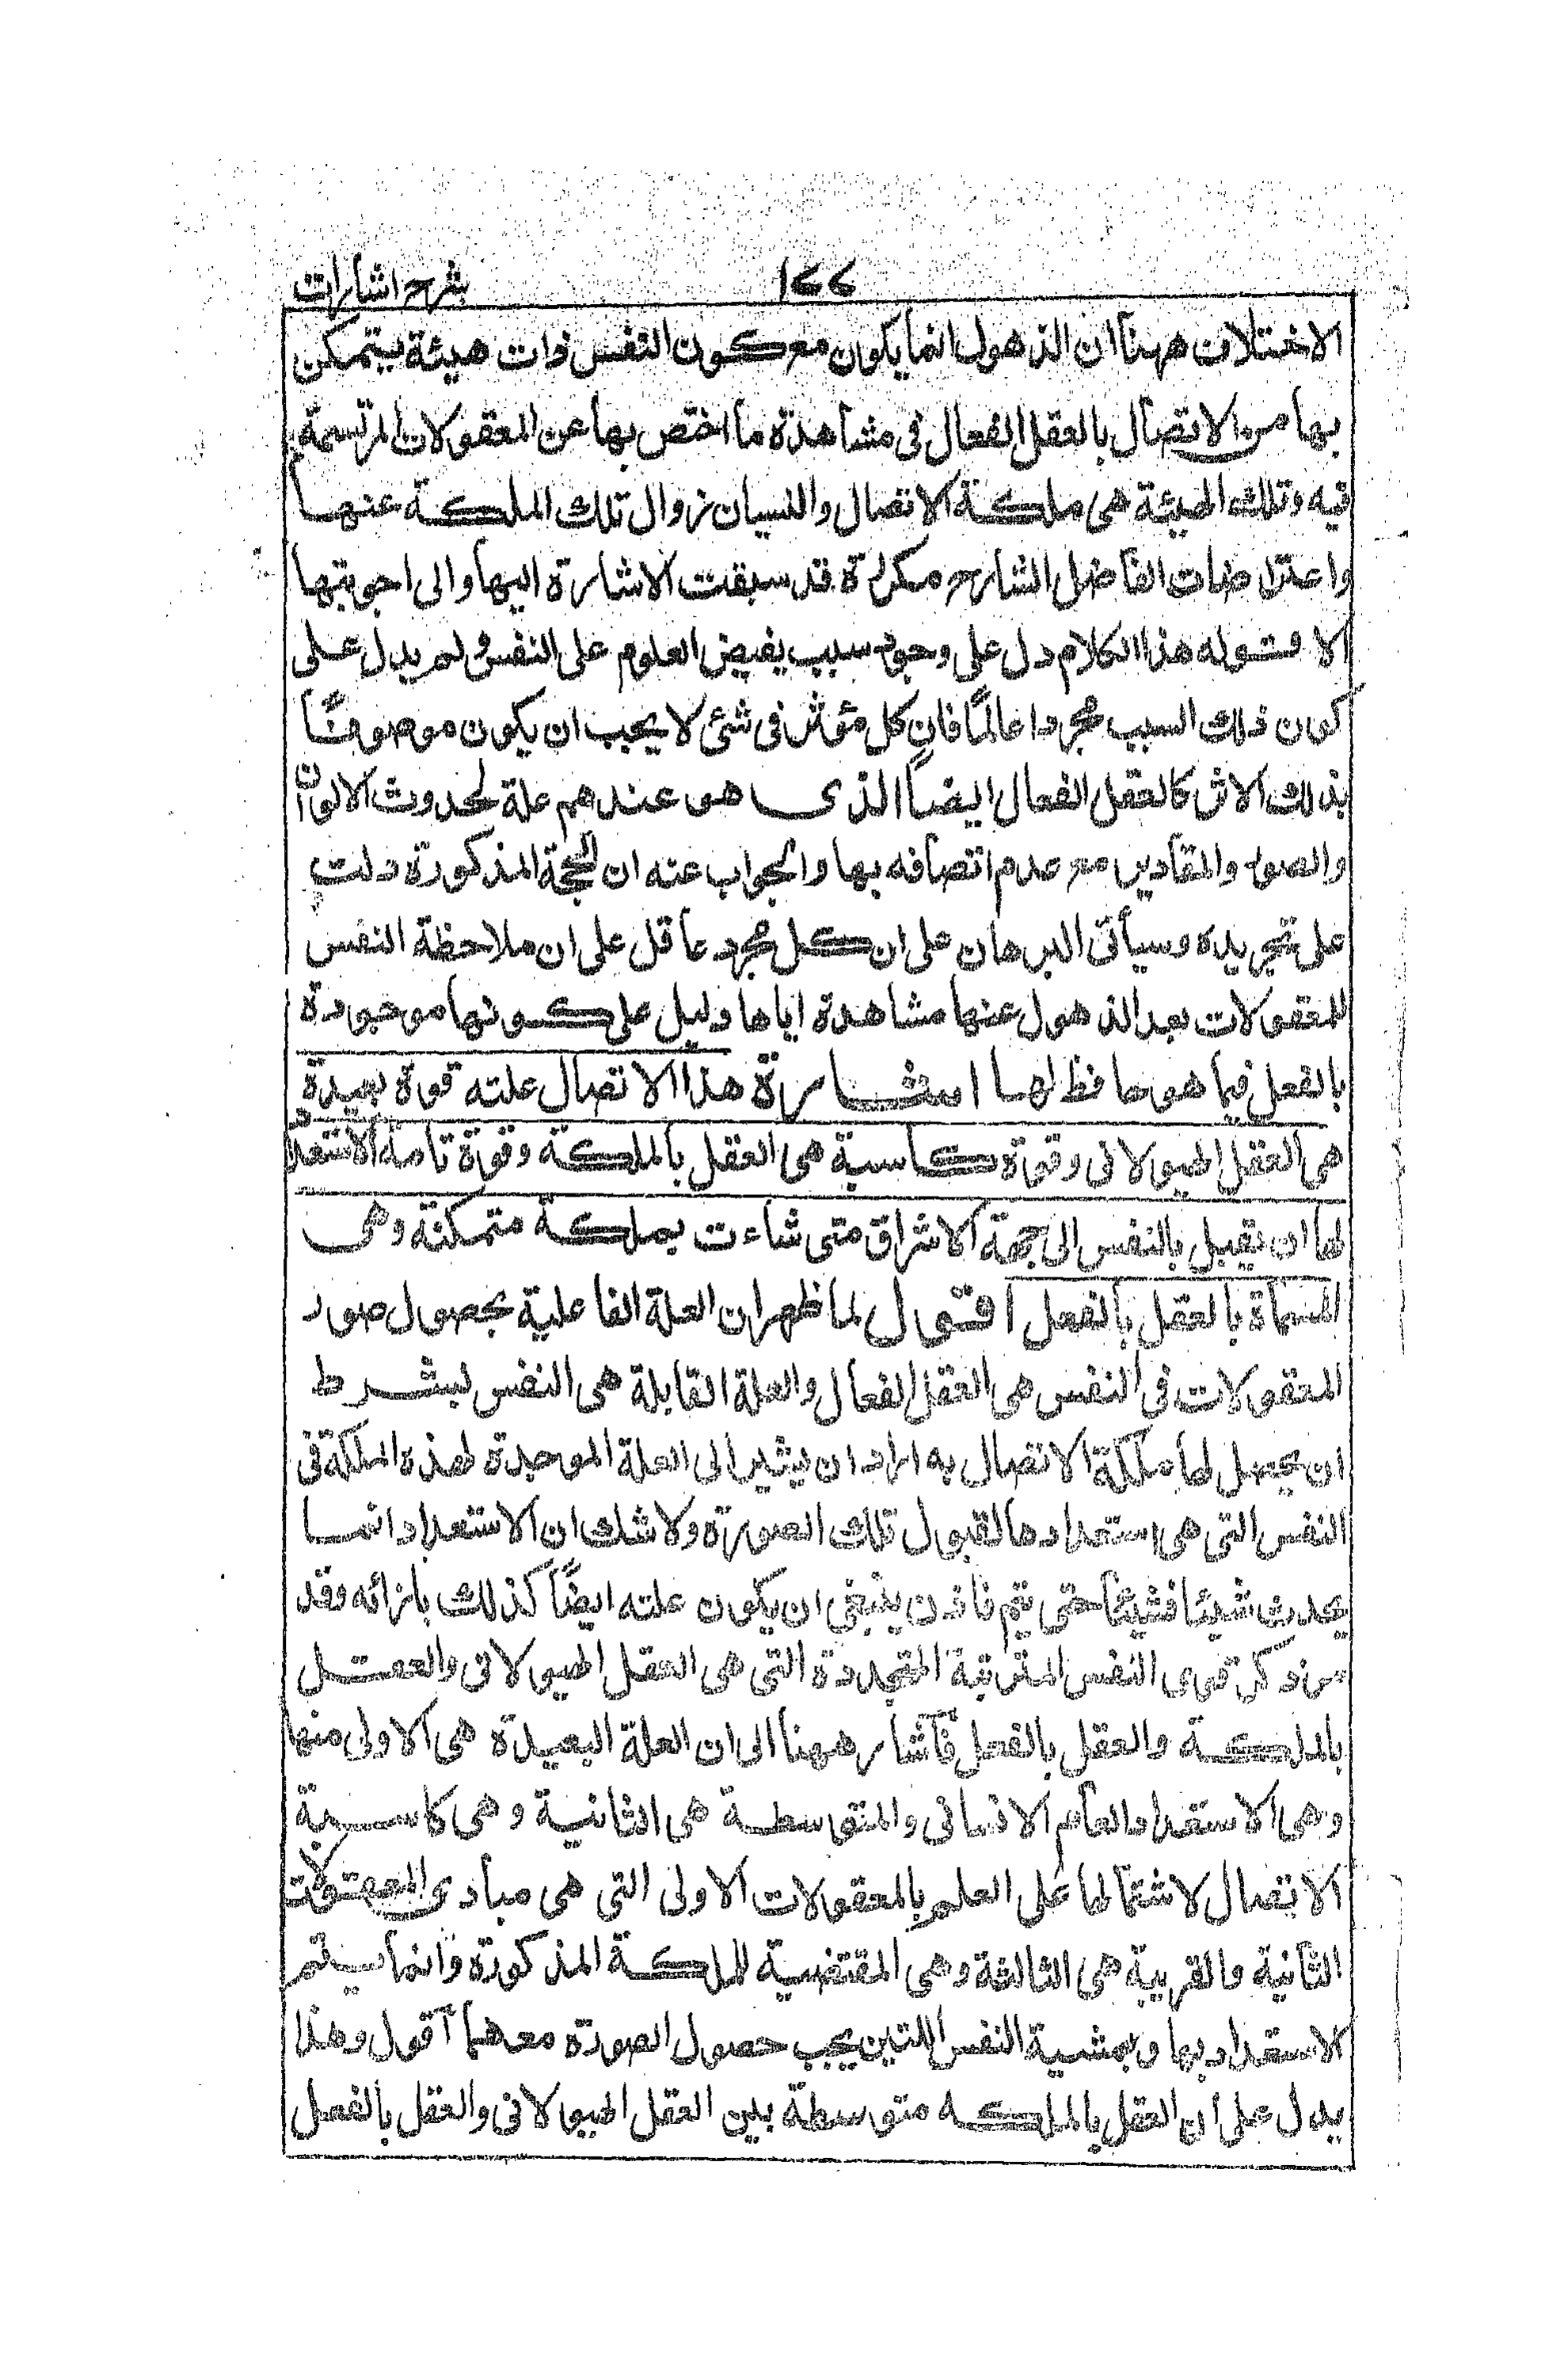 شرح اشارات ١٤٤
الاختلاف ههنا ان الذهول انما يكون مع كون النفس ذات هيئة يتمكن
بها من الاتصال بالعقل الفعال فى مشاهدة ما اختص بها عن المعقولات المرتسمة
فيه وتلك الهيئة هى ملكة الاتصال والنسيان زوال تلك الملكة عنها
واعتراضات الفاضل الشارح مكررة قد سبقت الاشارة اليها والى اجوبتها
الا قوله هذا الكلام دل على وجود سبب يفيض العلوم على النفس ولم يدل على
كون ذلك السبب مجردا عالمًا فان كل مؤثر فى شئ لا يجب ان يكون موصوفًا
بذلك الاثر كالعقل الفعال ايضًا الذى هو عندهم علة لحدوث الالوان
والصور والمقادير مع عدم اتصافه بها والجواب عنه ان الحجة المذكورة دلت
على تجريده وسيأتى البرهان على ان كل مجرد عاقل على ان ملاحظة النفس
للمعقولات بعد الذهول عنها مشاهدة اياها دليل على كونها موجودة
بالفعل فيما هو حافظ لها اشارة هذا الاتصال علته قوة بعيدة
هى العقل الهيولانى وقوة كاسبة هى العقل بالملكة وقوة تامة الاستعداد
لها ان يقبل بالنفس الى جهة الاشراق متى شاءت بملكة متمكنة وهى
المسماة بالعقل بالفعل اقول لما ظهر ان العلة الفاعلية بحصول صور
المعقولات فى النفس هى العقل الفعال والعلة القابلة هى النفس بشرط
ان يحصل لها ملكة الاتصال به اراد ان يشير الى العلة الموجدة لهذه الملكة فى
النفس التى هى استعدادها لقبول تلك الصورة ولا شك ان الاستعداد انما
يحدث شيئا فشيئا حتى يتم فاذن ينبغى ان يكون علته ايضًا كذلك بازائه وقد
مر ذكر قوى النفس المترتبة المتجددة التى هى العقل الهيولانى والعقل
بالملكة والعقل بالفعل فأشار ههنا الى ان العلة البعيدة هى الاولى منها
وهى الاستعداد العام الانسانى والمتوسطة هى الثانية وهى كاسبة
الاتصال لاشتمالها على العلم بالمعقولات الاولى التى هى مبادى المعقولات
الثانية والقريبة هى الثالثة وهى المقتضية للملكة المذكورة وانما يتم
الاستعداد بها وبمشية النفس اللتين يجب حصول الصورة معهما اقول وهذا
يدل على ان العقل بالملكة متوسطة بين العقل الهيولانى والعقل بالفعل